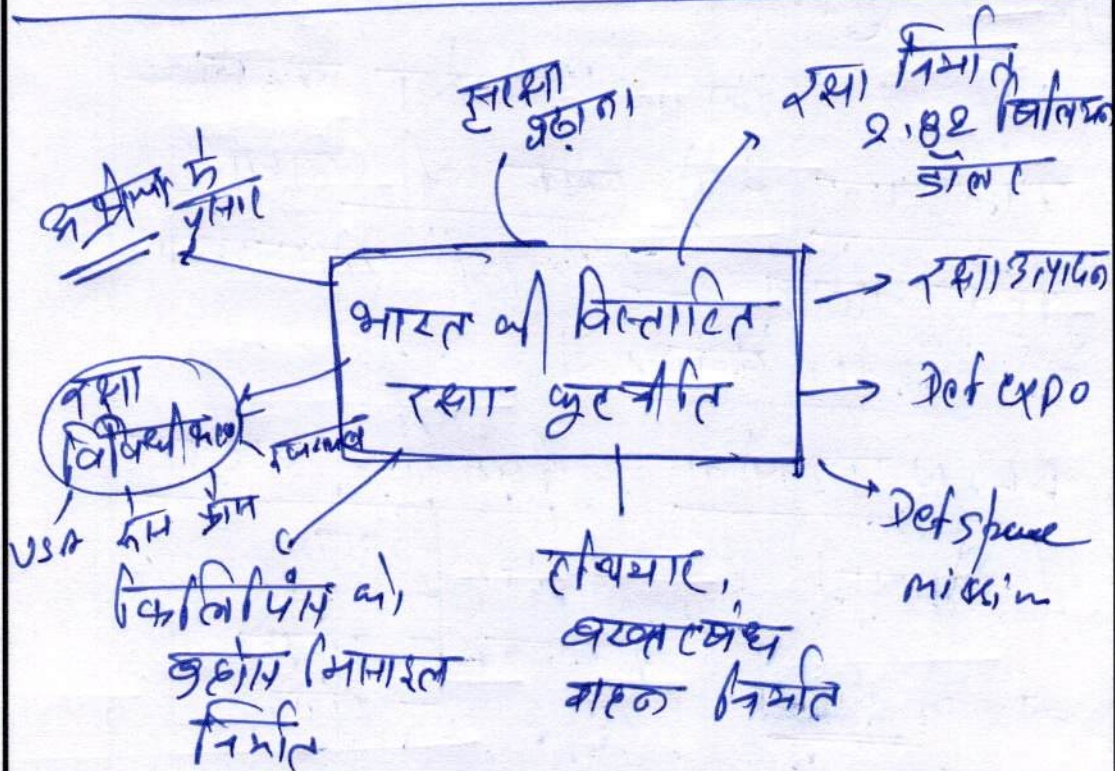 सुरक्षा
बढ़ाना
रक्षा निर्यात
2.82 बिलियन
डॉलर
में
प्रसार
भारत की विस्तारित
रक्षा कूटनीति
रक्षा उत्पादन
Def expo
Def space
mission
रक्षा
विविधीकरण
USA रूस फ्रांस
फिलिपींस को
ब्रह्मोस मिसाइल
निर्यात
हथियार,
बख्तरबंध
वाहन निर्यात